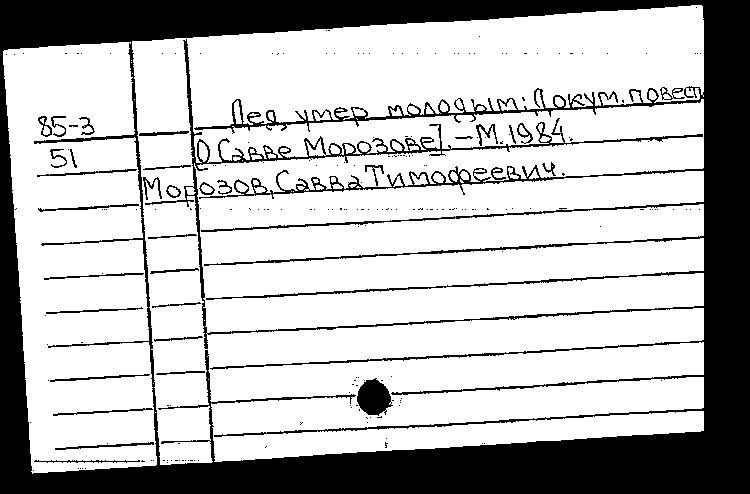 85-3 Дед умер молодым: Докум. повесть
51 [О Савве Морозове]. – М., 1984.
Морозов, Савва Тимофеевич.